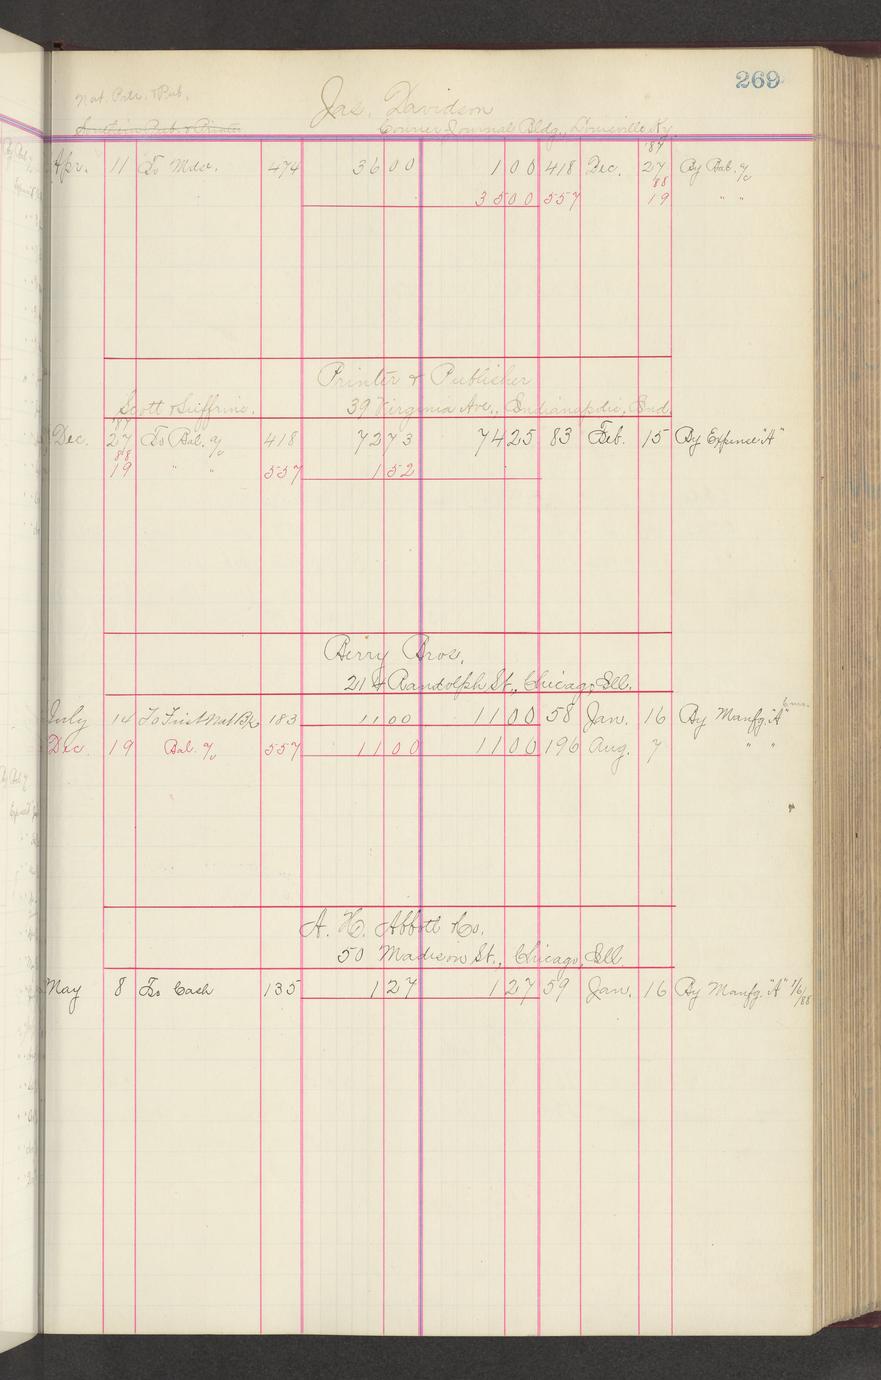 269
Nat. Prtr. & Pub. Jas. Davidson
Southern Pub. & Printer Courier Journal Bldg., Louisville, Ky.
'87
Apr. 11 To Mdse. 474 3600 100 418 Dec. 27 By Bal. a/c
'88
3500 557 19 " "
Printer & Publisher
Scott & 39 Virginia Ave., Indianapolis, Ind.
'87
Dec. 27 To Bal. a/c 418 7273 7425 83 Feb. 15 By Expense "A"
'88
19 " " 557 152
Berry Bros.
214 Randolph St., Chicago, Ill.
July 14 To First Nat Bk 183 1100 1100 58 Jan. 16 By Manfg. "A" 6 mos.
Dec. 19 Bal. a/c 557 1100 1100 196 Aug. 7 " "
A. H. Abbott & Co.
50 Madison St., Chicago, Ill.
May 8 To Cash 135 127 127 59 Jan. 16 By Manfg. "A" 1/6/88